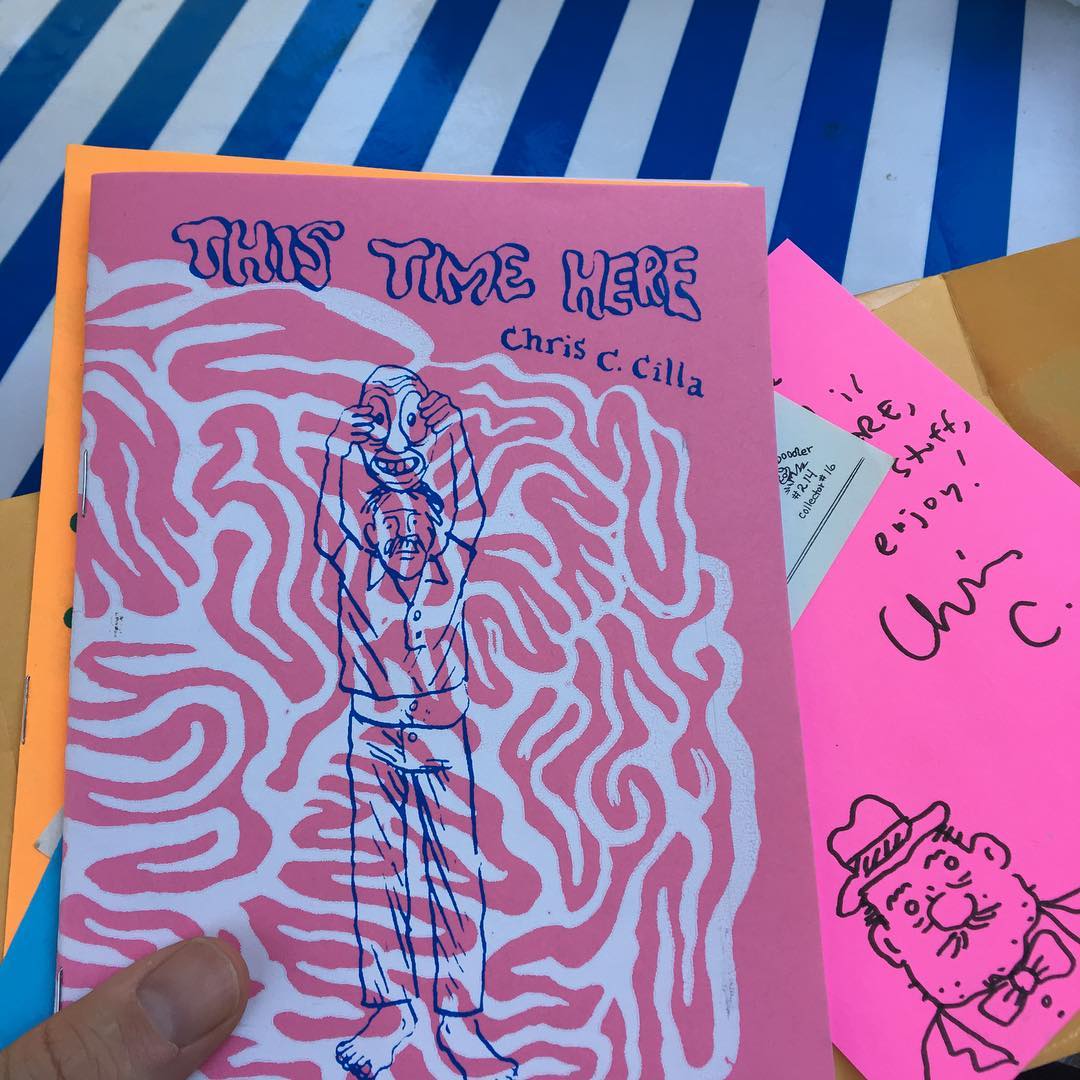 THIS TIME HERE
Chris C. Cilla
Doodler
#214
collector #16
stuff,
enjoy!
Chris
C.